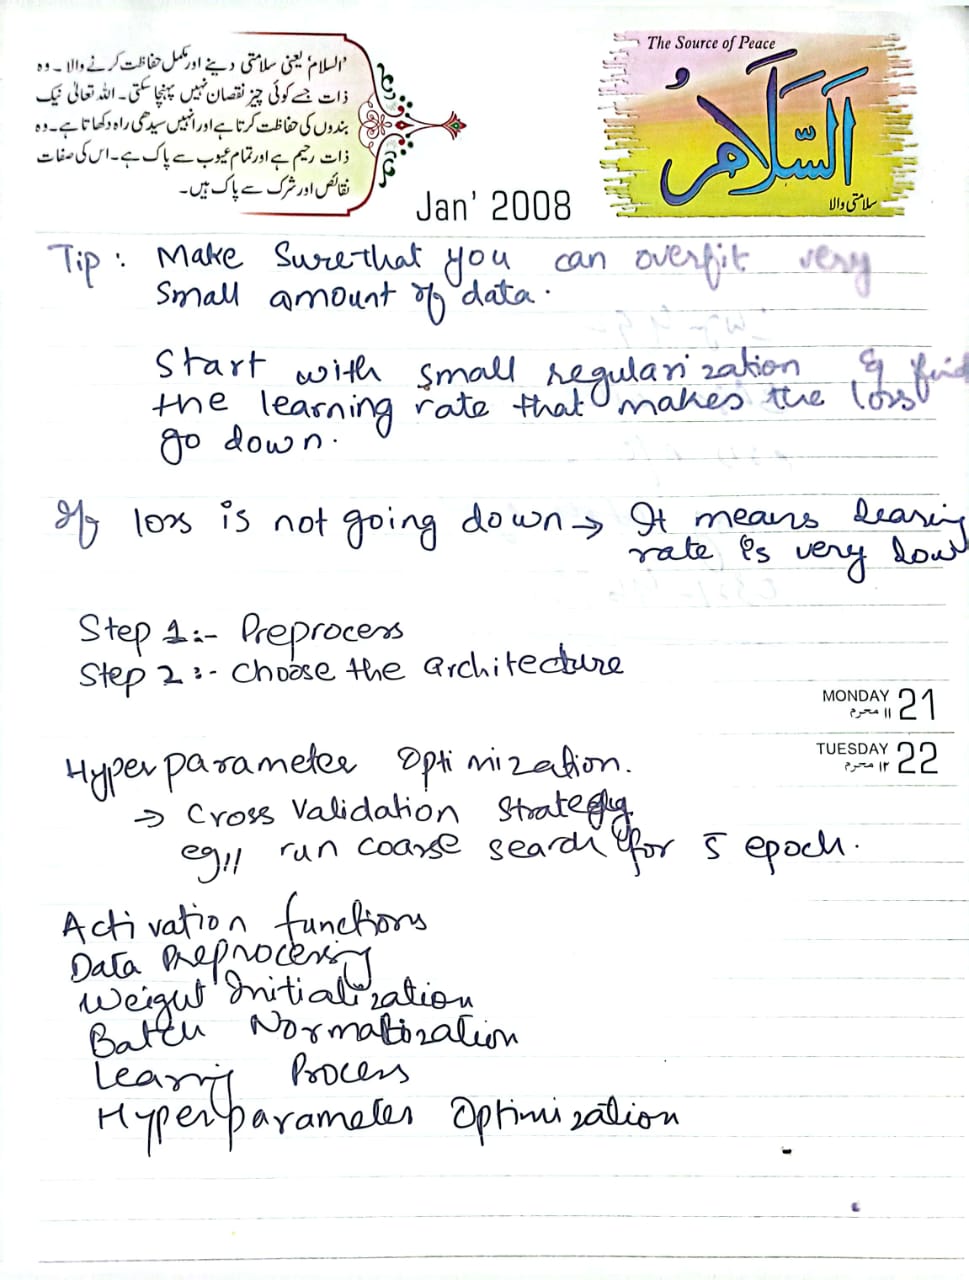 'السلام' یعنی سلامتی دینے اور مکمل حفاظت کرنے والا۔ وہ
ذات جسے کوئی چیز نقصان نہیں پہنچا سکتی۔ اللہ تعالیٰ نیک
بندوں کی حفاظت کرتا ہے اور انہیں سیدھی راہ دکھاتا ہے۔ وہ
ذات رحیم ہے اور تمام عیوب سے پاک ہے۔ اس کی صفات
نقائص اور شرک سے پاک ہیں۔
The Source of Peace
اَلسَّلَامُ
سلامتی والا
Jan' 2008
Tip: Make Sure that you can overfit very
Small amount of data.
Start with small regularization & find
the learning rate that makes the loss
go down.
If loss is not going down → It means learing
rate is very low
Step 1:- Preprocess
Step 2:- Choose the architecture
MONDAY 21
۱۱ محرم
TUESDAY 22
۱۲ محرم
Hyperparameter Optimization.
→ Cross Validation Strategy
eg!! run coarse search for 5 epoch.
Activation functions
Data Preprocessing
Weight Initialization
Batch Normalization
Learnig Process
Hyperparameter Optimization